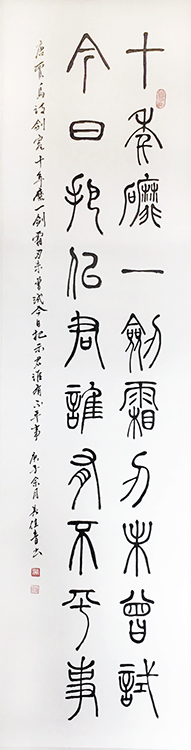 十年磨一劍霜刃未曾試
今日把似君誰有不平事
唐賈島詩劍客十年磨一劍霜刃未曾試今日把示君誰有不平事 庚子余月